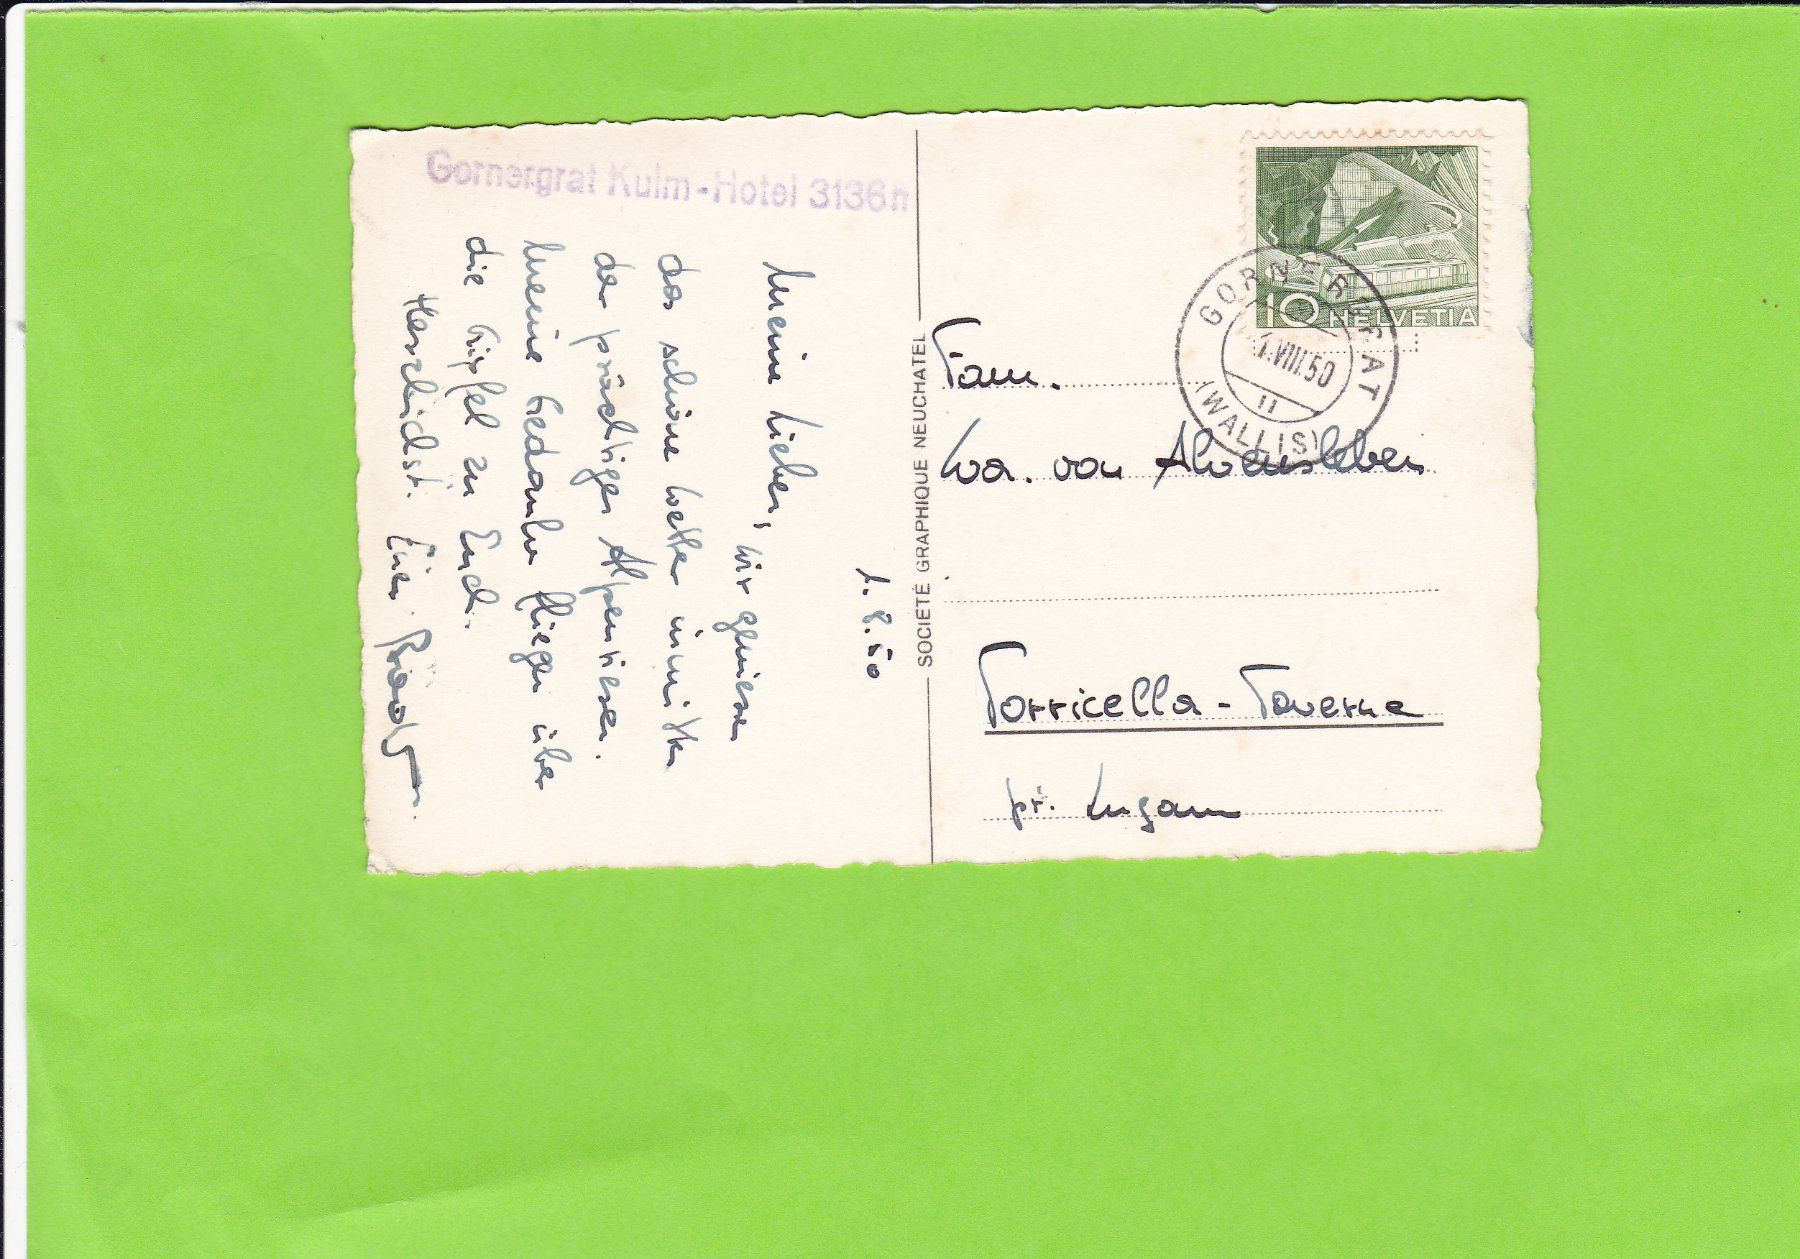 Gornergrat Kulm-Hotel 3136m
1.8.50
Meine Lieben, wir geniesen
das schöne Wetter inmitten
der prächtigen Alpenriesen.
Meine Gedanken fliegen über
die Gipfel zu Euch.
Herzlichst. Euer
SOCIÉTÉ GRAPHIQUE NEUCHATEL
10 HELVETIA
GORNERGRAT
1.VIII.50
11
(WALLIS)
Fam.
von Alvensleben
Torricella-Taverne
pr. Lugano